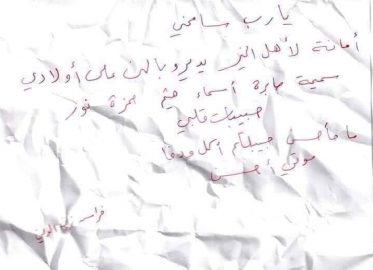 يارب سامحني
أمانة لأهل الخير يديرو بالهن على أولادي
سمية صابرة أسماء هشم حمزة نور
حبيبات قلبي
ما فأحسن جيبلكم أكل ودفا
موتي أحسن
فراس